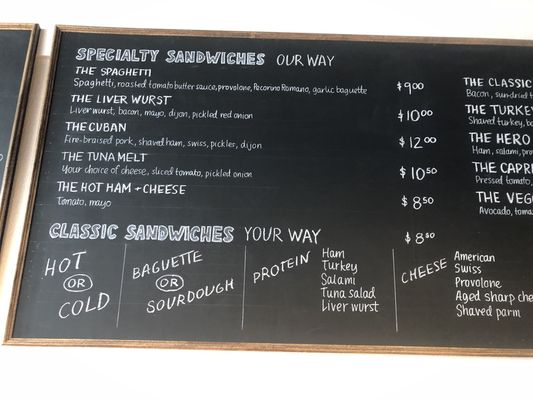 SPECIALTY SANDWICHES OUR WAY
THE SPAGHETTI $9.00
Spaghetti, roasted tomato butter sauce, provolone, Pecorino Romano, garlic baguette
THE LIVER WURST $10.00
Liver wurst, bacon, mayo, dijon, pickled red onion
THE CUBAN $12.00
Fire-braised pork, shaved ham, swiss, pickles, dijon
THE TUNA MELT $10.50
Your choice of cheese, sliced tomato, pickled onion
THE HOT HAM + CHEESE $8.50
Tomato, mayo
CLASSIC SANDWICHES YOUR WAY $8.50
HOT
OR
COLD
BAGUETTE
OR
SOURDOUGH
PROTEIN
Ham
Turkey
Salami
Tuna salad
Liver wurst
CHEESE
American
Swiss
Provolone
Aged sharp che
Shaved parm
THE CLASSIC
Bacon, sun-dried t
THE TURKEY
Shaved turkey, ba
THE HERO
Ham, salami, pro
THE CAPR
Pressed tomato,
THE VEG
Avocado, toma